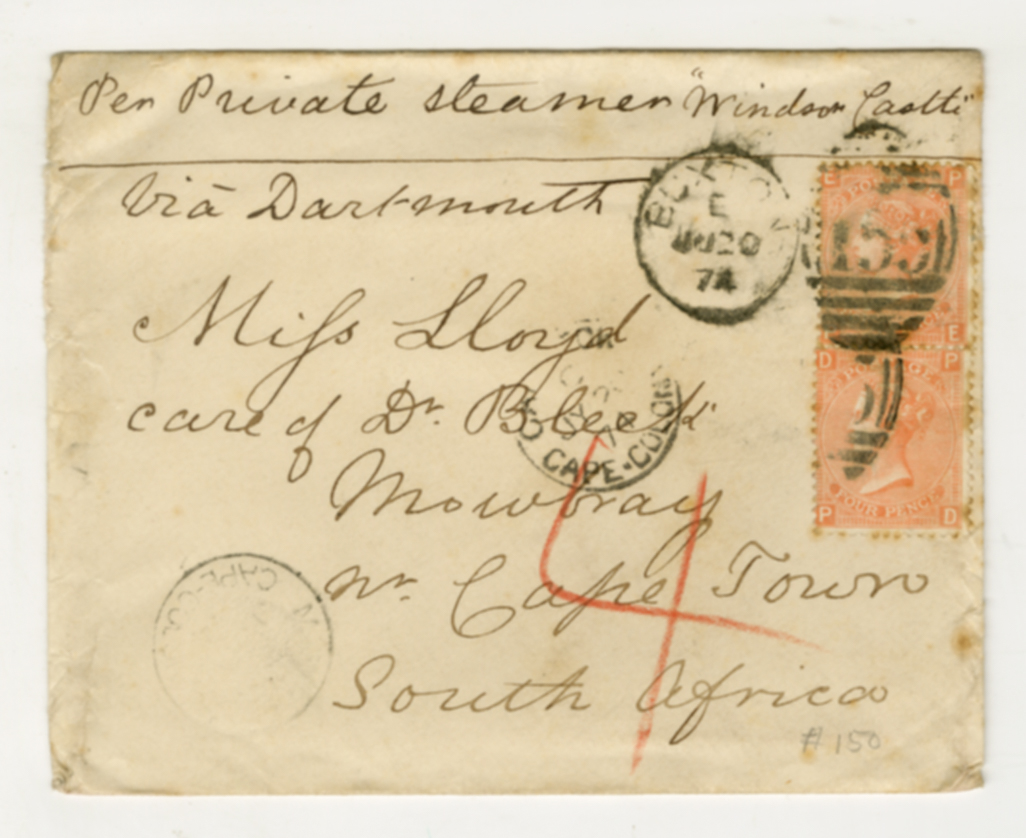 Per Private steamer "Windsor Castle"
Via Dartmouth
BUXTON
E
JU20
74
159
C P
E
Miss Lloyd
care of Dr. Bleek
CAPE-COLONY
D P
FOUR PENCE
P D
Mowbray
4
nr. Cape Town
CAPE-CO
South Africa
# 150